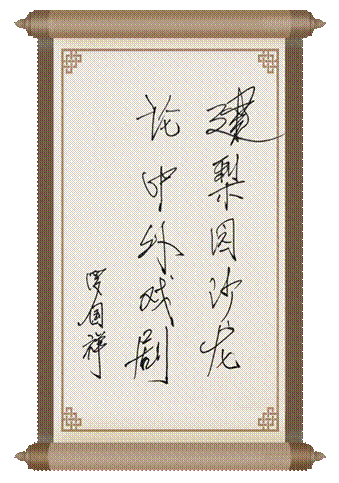 建梨园沙龙
论中外戏剧
罗国祥